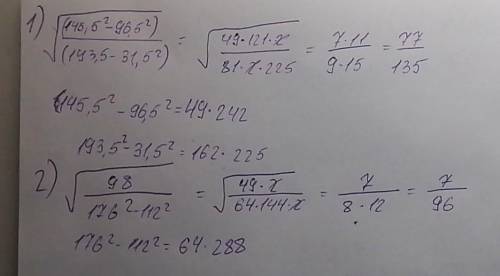 1) √((145,5²-96,5²)/(193,5-31,5²)) = √(49·121·2/81·2·225) = 7·11/9·15 = 77/135
145,5²-96,5²=49·242
193,5²-31,5²=162·225
2) √(98/176²-112²) = √(49·2/64·144·2) = 7/8·12 = 7/96
176²-112²=64·288